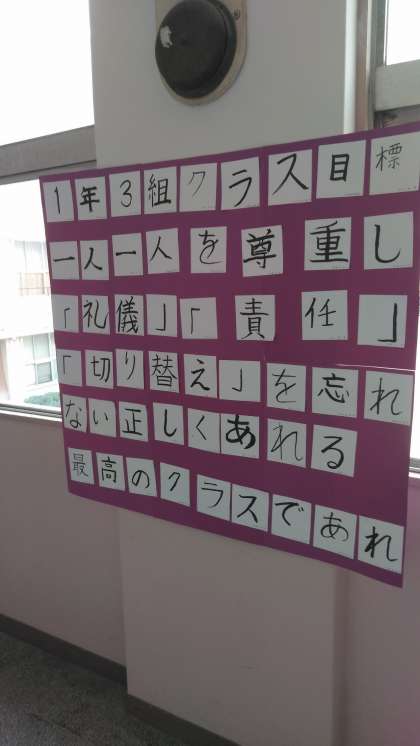 1年3組クラス目標
一人一人を尊重し
「礼儀」「責任」
「切り替え」を忘れ
ない正しくあれる
最高のクラスであれ